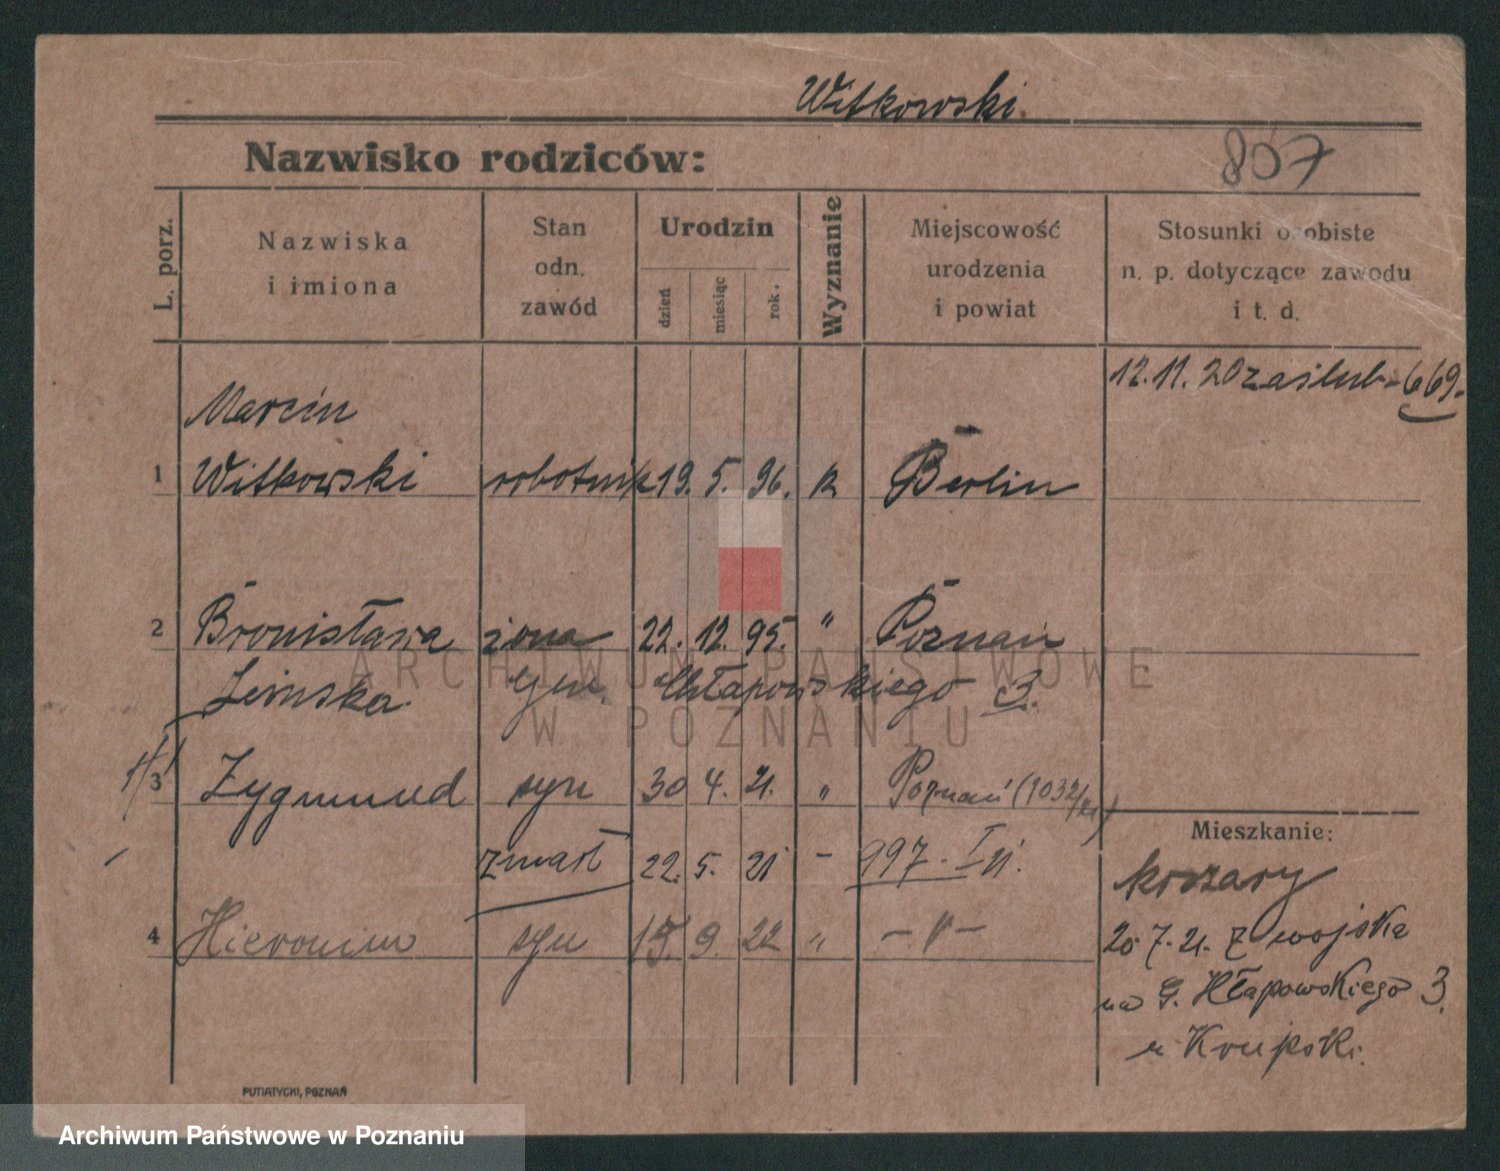 Witkowski.
Nazwisko rodziców:
807
L. porz.
Nazwiska
i imiona
Stan
odn.
zawód
Urodzin
dzień
miesiąc
rok.
Wyznanie
Miejscowość
urodzenia
i powiat
Stosunki osobiste
n. p. dotyczące zawodu
i t. d.
12.11.20 zaślub - 669.
Marcin
1 Witkowski robotnik 19. 5. 96. k Berlin
2 Bronisława żona 22. 12. 95. " Poznań
Gen. Chłapowskiego 3.
3 Zygmund syn 30 4. 21. " Poznań (1032/21)
zmarł 22. 5. 21 - 997.
4 Hieronim syn 15. 9. 22 " - " -
Mieszkanie:
koszary
20.7.21. z wojska
na G. Chłapowskiego 3.
u Krupski.
PUTIATYCKI, POZNAŃ
ARCHIWUM PAŃSTWOWE
W POZNANIU
Archiwum Państwowe w Poznaniu